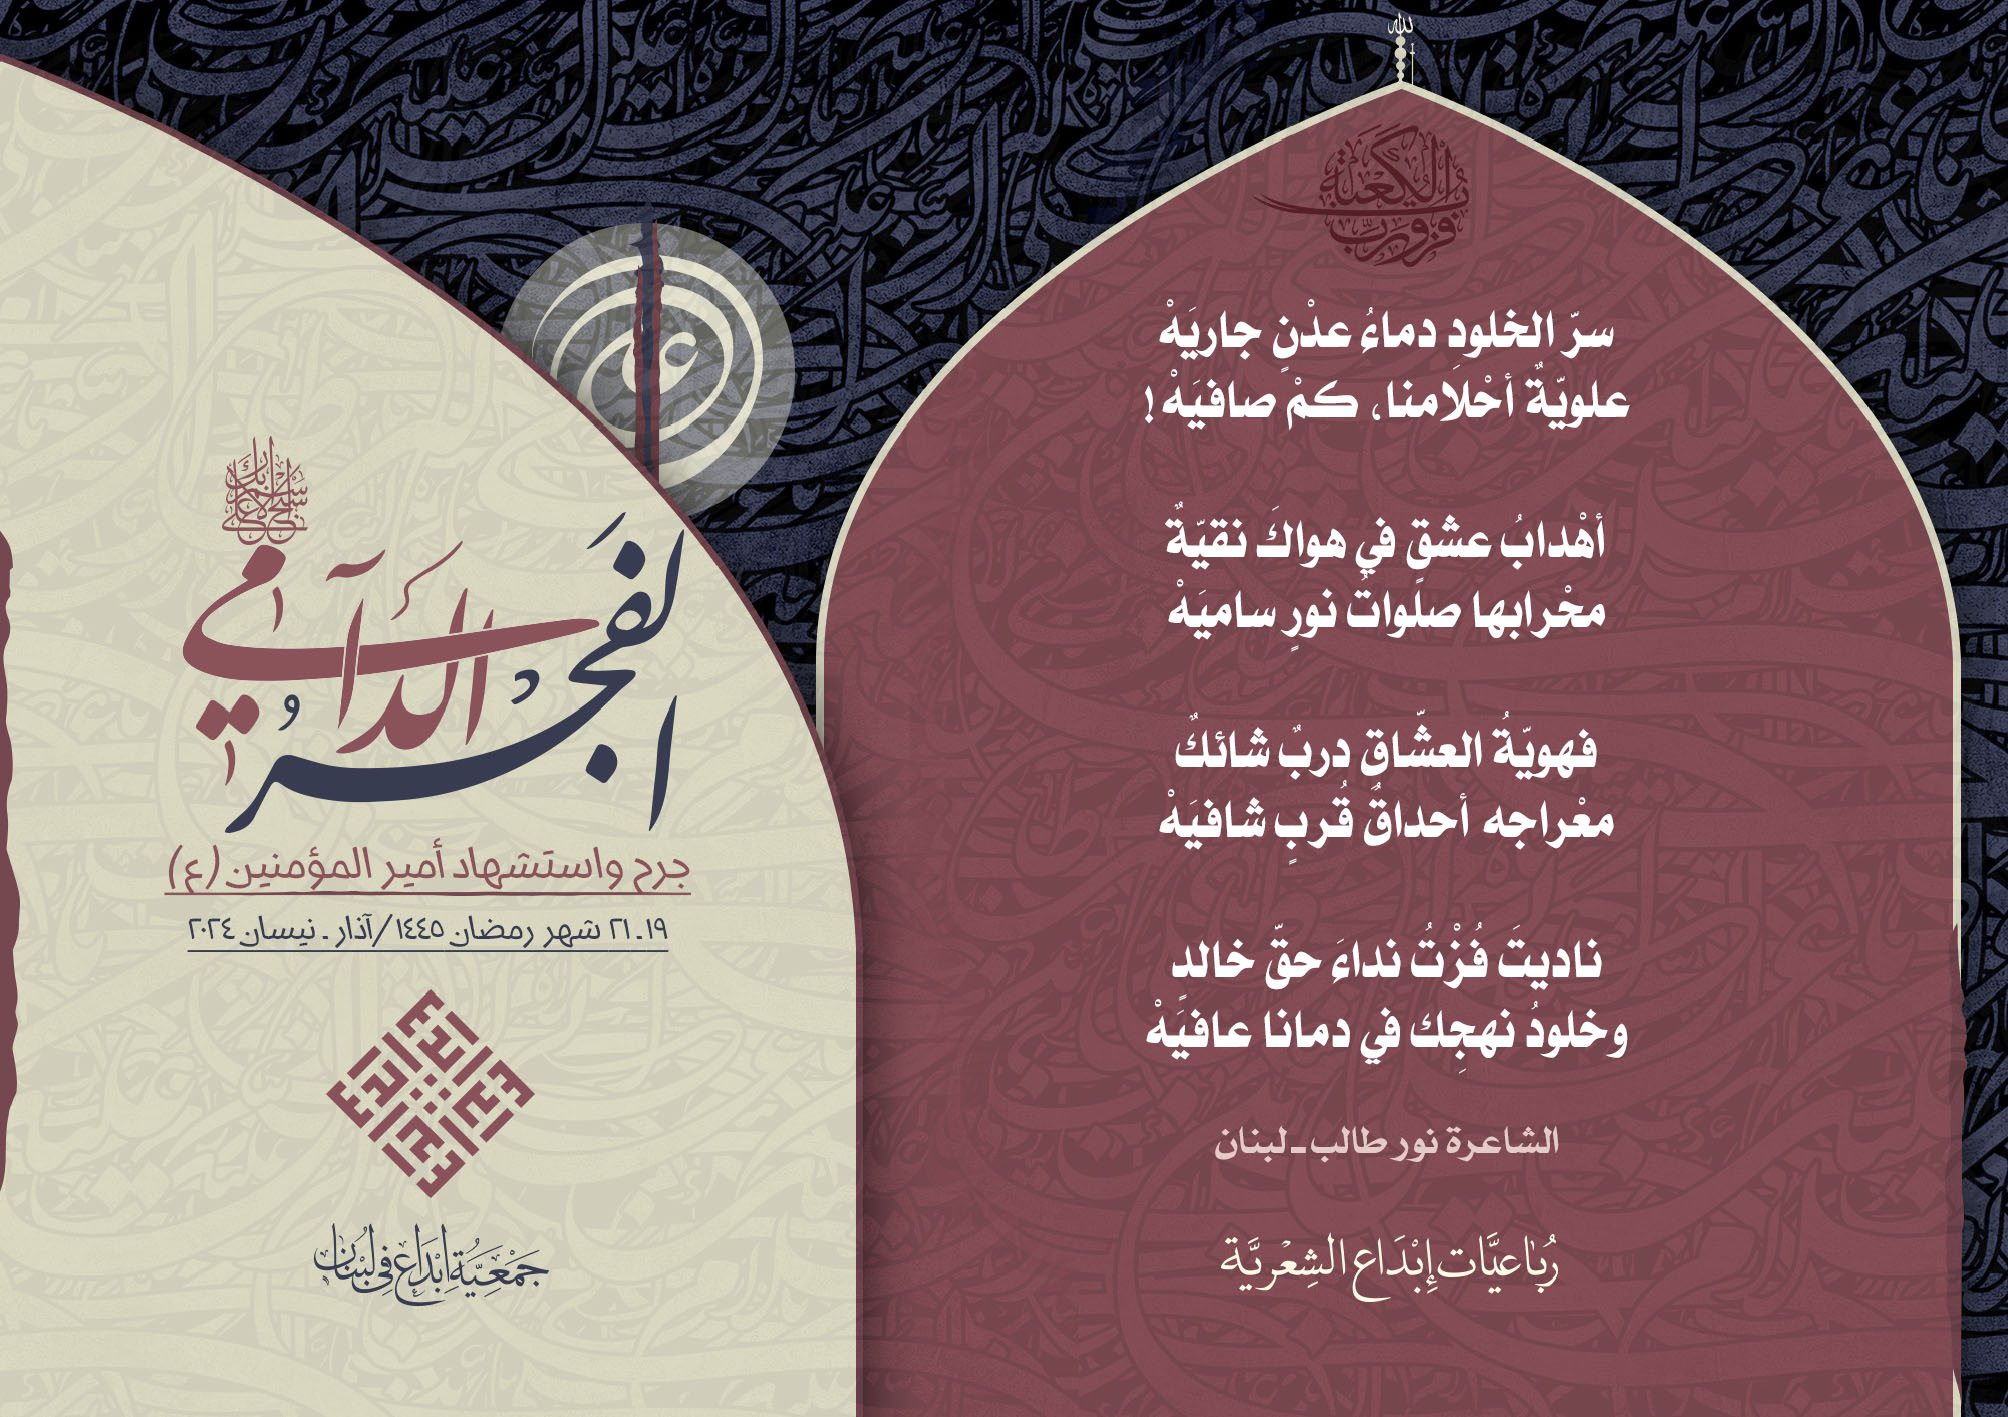 الله
فزت ورب الكعبة
سرّ الخلودِ دماءُ عدْنٍ جاريَهْ
علويّةٌ أحْلامنا، كمْ صافيَهْ!
أهْدابُ عشقٍ في هواكَ نقيّةٌ
محْرابها صلواتُ نورٍ ساميَهْ
فهويّةُ العشّاق دربٌ شائكٌ
معْراجه أحداقُ قُربٍ شافيَهْ
ناديتَ فُزْتُ نداءَ حقّ خالدٍ
وخلودُ نهجِك في دمانا عافيَهْ
الشاعرة نور طالب - لبنان
رُبَاعيَّات إِبْدَاع الشِعْريَّة
علي
سبح اسم ربك الأعلى
الفَجرُ الدَّامي
جرح واستشهاد أمير المؤمنين (ع)
١٩ - ٢١ شهر رمضان ١٤٤٥ / آذار - نيسان ٢٠٢٤
إبداع
جَمْعِيَّة إِبْدَاع فِي لُبْنَان